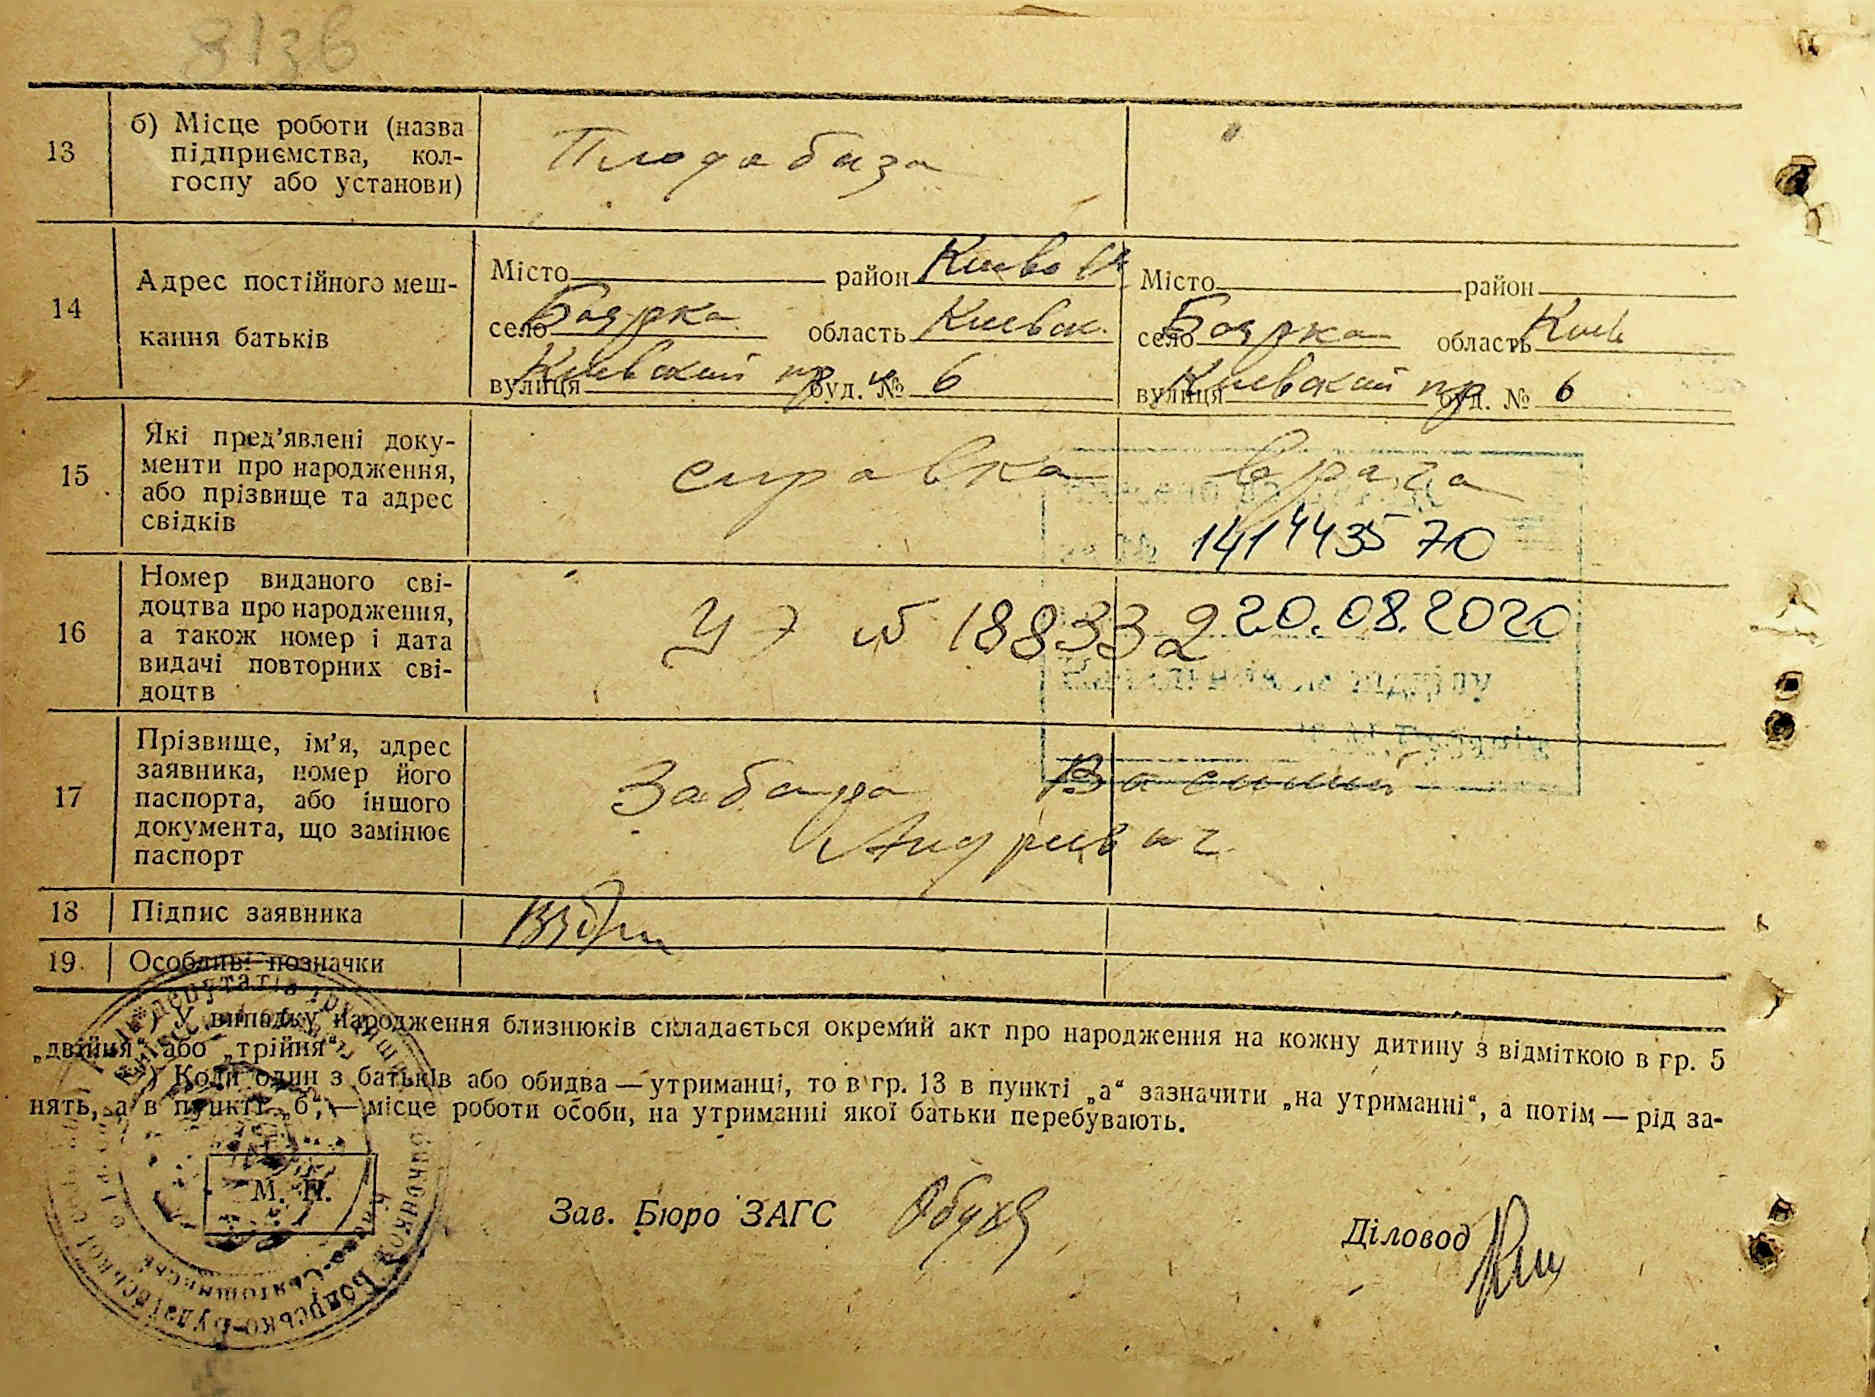 8136
13
б) Місце роботи (назва
підприємства, кол-
госпу або установи)
Плодабаза
14
Адрес постійного меш-
кання батьків
Місто район Киево
село Боярка область Киевск.
вулиця Киевский пр буд. № 6
Місто район
село Боярка область Киев
вулиця Киевский пр буд. № 6
15
Які пред’явлені доку-
менти про народження,
або прізвище та адрес
свідків
справка врача
1414435 70
16
Номер виданого сві-
доцтва про народження,
а також номер і дата
видачі повторних сві-
доцтв
№ 188332
20.08.2020
17
Прізвище, ім’я, адрес
заявника, номер його
паспорта, або іншого
документа, що замінює
паспорт
Забара Василий
Андриевич
18
Підпис заявника
19.
Особливі позначки
) У випадку народження близнюків складається окремий акт про народження на кожну дитину з відміткою в гр. 5
„двійня“ або „трійня“.
) Коли один з батьків або обидва — утриманці, то в гр. 13 в пункті „а“ зазначити „на утриманні“, а потім — рід за-
нять, а в пункті „б“, — місце роботи особи, на утриманні якої батьки перебувають.
М. П.
Зав. Бюро ЗАГС
Діловод